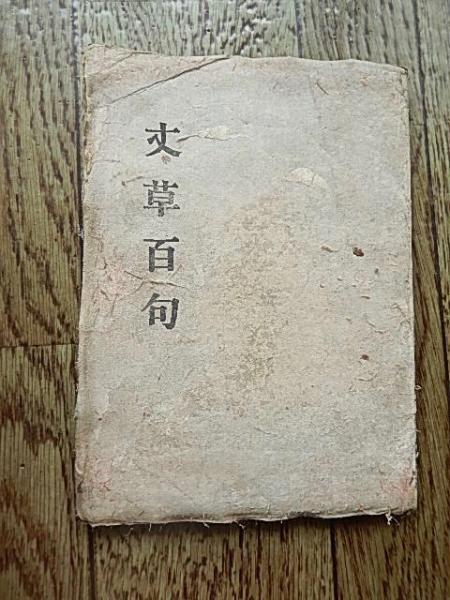 丈草百句